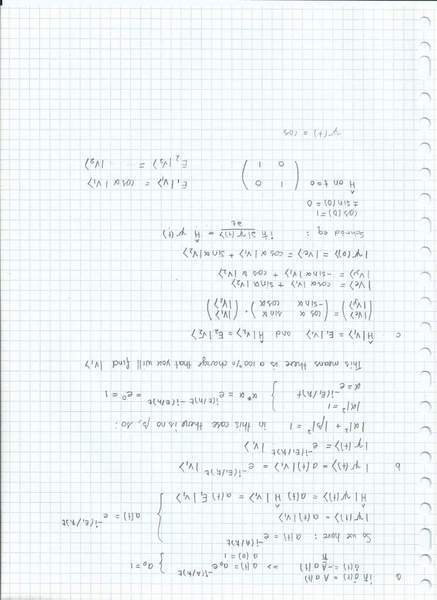 a iħ ȧ(t) = A a(t)
ȧ(t) = -i/ħ A a(t) => a(t) = a₀ e^{-i(A/ħ)t} } a₀ = 1
a(0) = 1
So we have: a(t) = e^{-i(A/ħ)t}
|ψ(t)> = a(t) |v₁>
Ĥ|ψ(t)> = a(t) Ĥ|v₁> = a(t) E₁|v₁> } a(t) = e^{-i(E₁/ħ)t}
b |ψ(t)> = a(t)|v₁> = e^{-i(E₁/ħ)t} |v₁>
|ψ(t)> = e^{-i(E₁/ħ)t} |v₁>
|α|² + |β|² = 1 in this case there is no β, so:
|α|² = 1
α = e^{-i(E₁/ħ)t} } α*α = e^{i(E/ħ)t - i(E/ħ)t} = e⁰ = 1
This means there is a 100% change that you will find |v₁>
c Ĥ|v₁> = E₁|v₁> and Ĥ|v₂> = E₂|v₂>
(|ve> |vμ>) = (cos α sin α -sin α cos α) · (|v₁> |v₂>)
|ve> = cos α |v₁> + sin α |v₂>
|vμ> = -sin α |v₁> + cos α |v₂>
|ψ(0)> = |ve> = cos α |v₁> + sin α |v₂>
Schröd eq: iħ ∂|ψ(t)>/∂t = Ĥ ψ(t)
cos(0) = 1
± sin(0) = 0
Ĥ on t=0 (1 0 0 1) E₁|v₁> = cos α |v₁>
E₂|v₂> = |v₂>
ψ(t) = cos